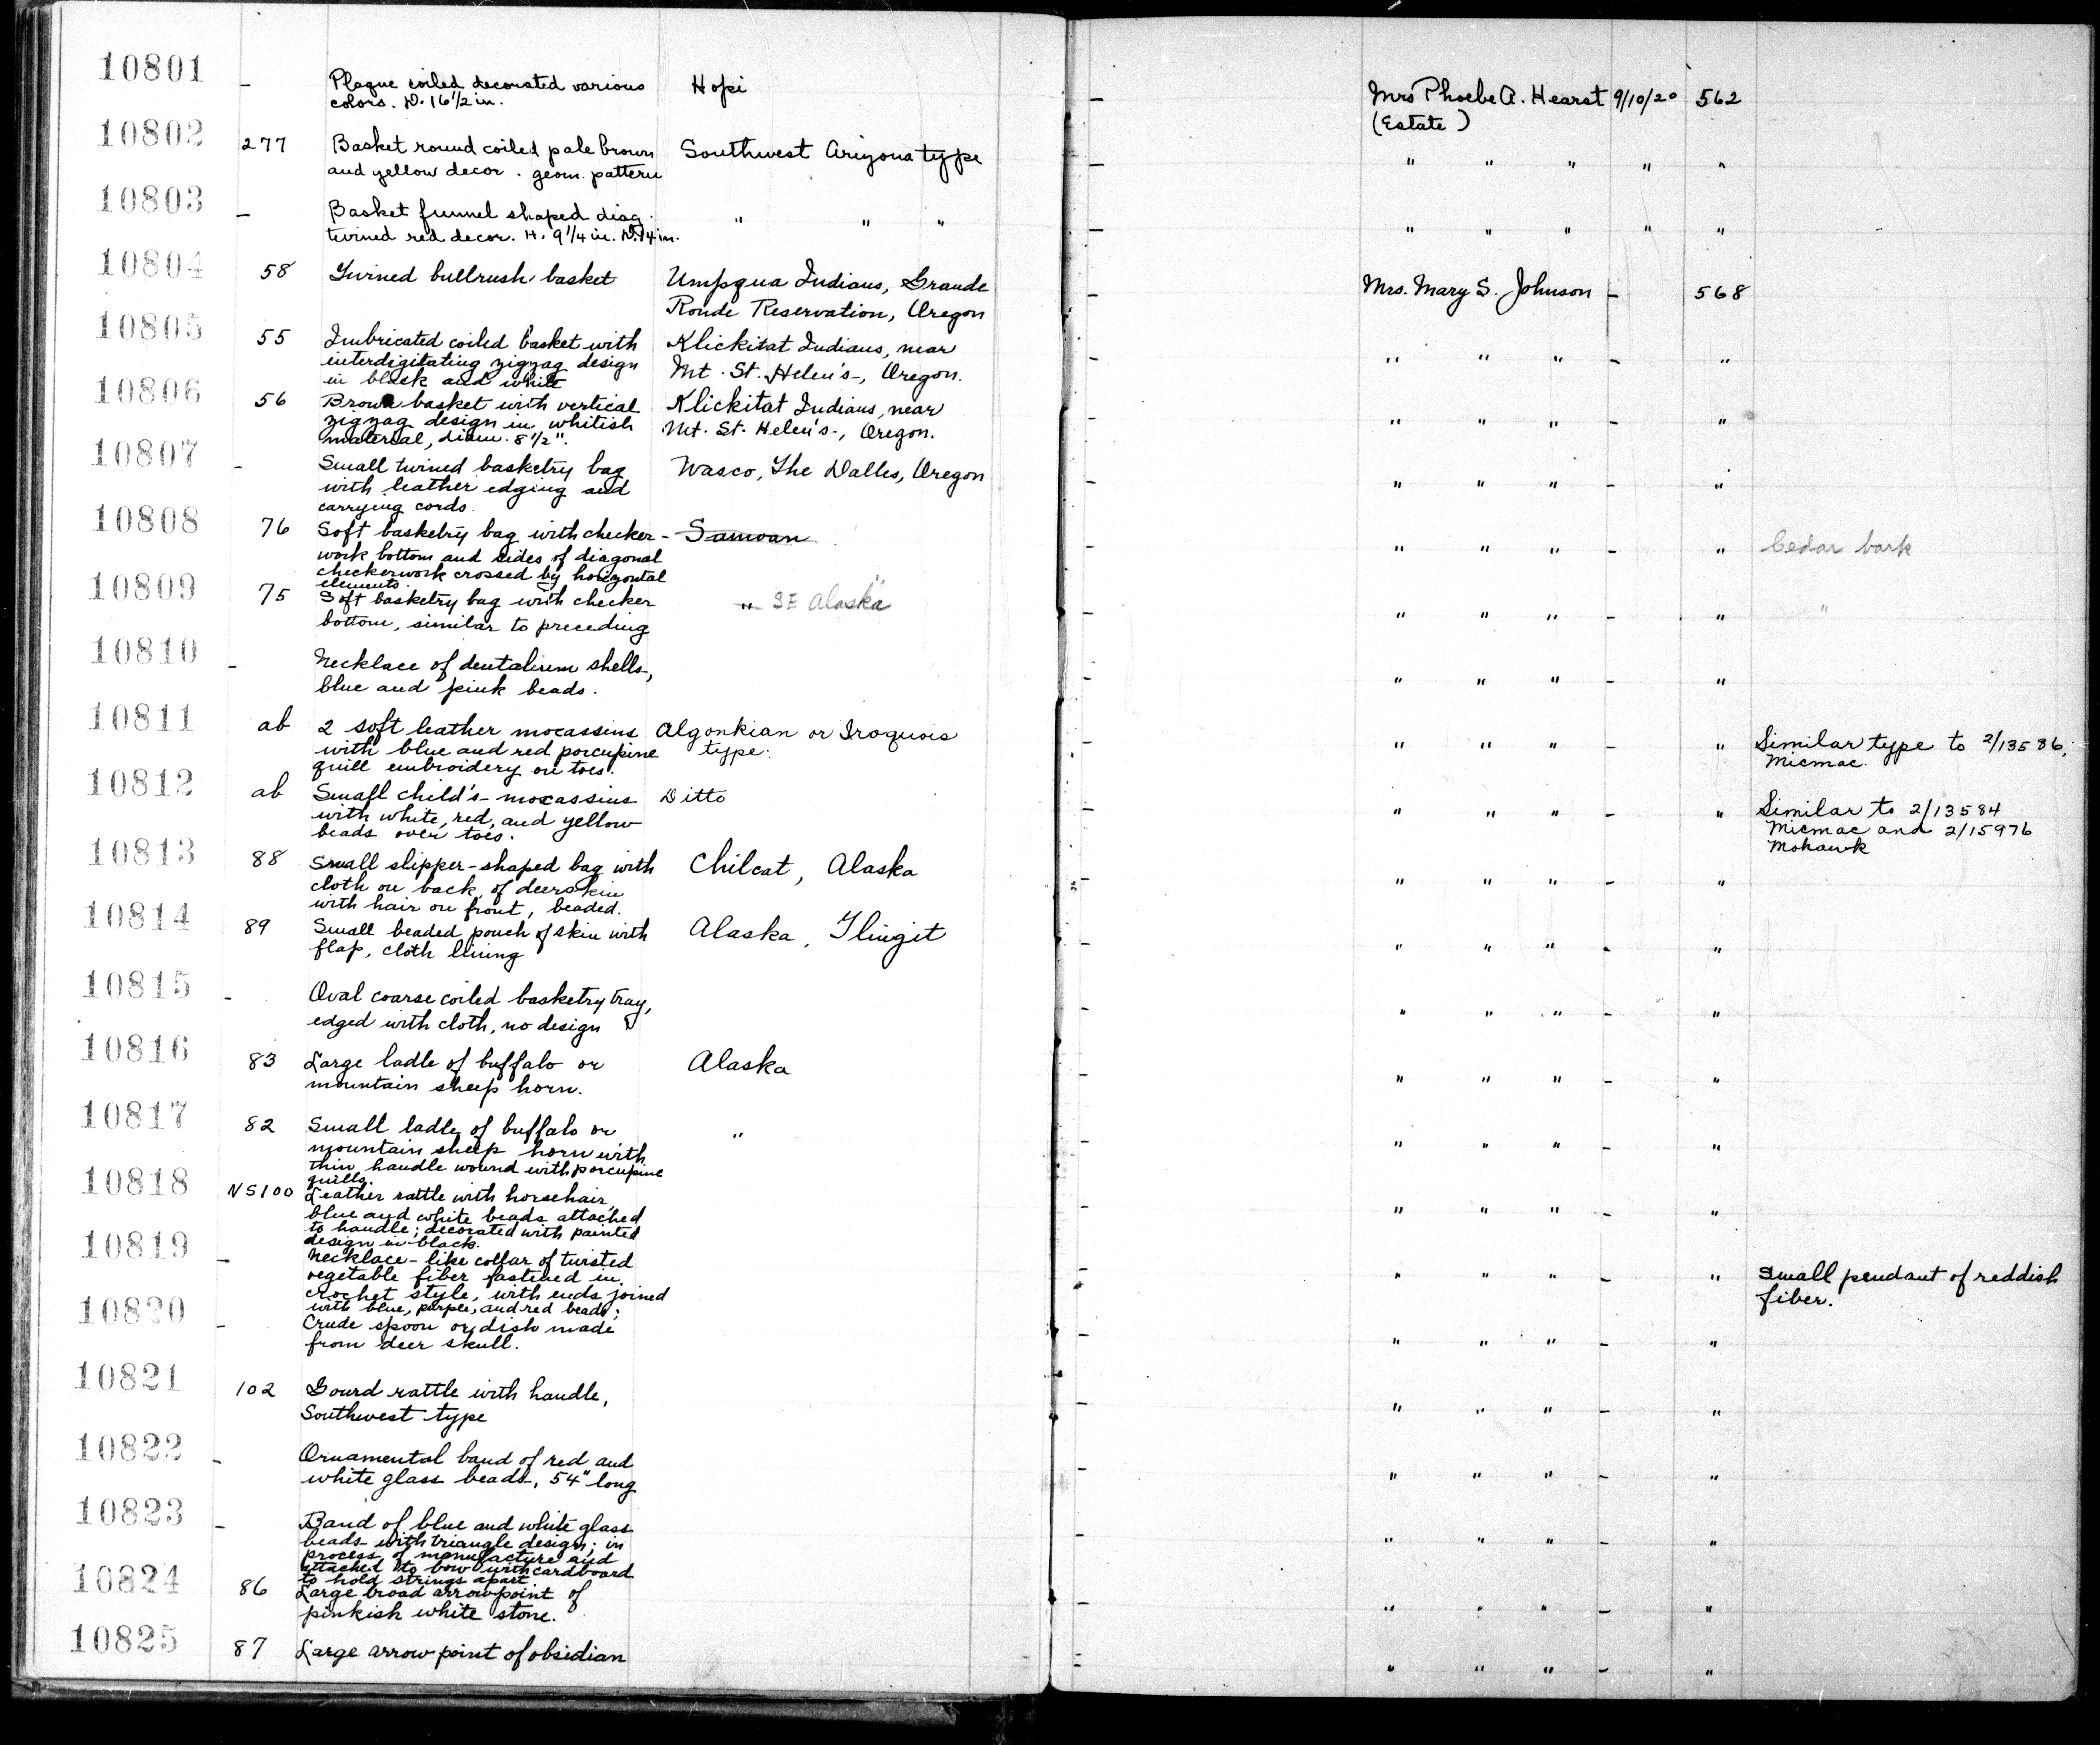 10801 - Plaque coiled decorated various Hopi - Mrs Phoebe A. Hearst 9/10/20 562
colors. D. 16 1/2 in. (Estate)
10802 277 Basket round coiled pale brown Southwest Arizona type - " " " " "
and yellow decor. geom. pattern
10803 - Basket funnel shaped diag. " " " - " " " " "
twined red decor. H. 9 1/4 in. D. 14 in.
10804 58 Twined bullrush basket Umpqua Indians, Grande - Mrs. Mary S. Johnson - 568
Ronde Reservation, Oregon
10805 55 Imbricated coiled basket with Klickitat Indians, near - " " " - "
interdigitating zigzag design Mt. St. Helen's, Oregon.
in black and white
10806 56 Brown basket with vertical Klickitat Indians, near - " " " - "
zigzag design in whitish Mt. St. Helen's, Oregon.
material, diam. 8 1/2".
10807 - Small twined basketry bag Wasco, The Dalles, Oregon - " " " - "
with leather edging and
carrying cords.
10808 76 Soft basketry bag with checker- Samoan - " " " - " Cedar bark
work bottom and sides of diagonal
checkerwork crossed by horizontal
elements.
10809 75 Soft basketry bag with checker " SE Alaska - " " " - " "
bottom, similar to preceding
10810 - Necklace of dentalium shells, - " " " - "
blue and pink beads.
10811 ab 2 soft leather mocassins Algonkian or Iroquois - " " " - " Similar type to 2/13586,
with blue and red porcupine type. Micmac.
quill embroidery on toes.
10812 ab Small child's mocassins Ditto - " " " - " Similar to 2/13584
with white, red, and yellow Micmac and 2/15976
beads over toes. Mohawk
10813 88 Small slipper-shaped bag with Chilcat, Alaska - " " " - "
cloth on back, of deerskin
with hair on front, beaded.
10814 89 Small beaded pouch of skin with Alaska, Tlingit - " " " - "
flap, cloth lining
10815 - Oval coarse coiled basketry tray, - " " " - "
edged with cloth, no design
10816 83 Large ladle of buffalo or Alaska - " " " - "
mountain sheep horn.
10817 82 Small ladle of buffalo or " - " " " - "
mountain sheep horn with
thin handle wound with porcupine
quills.
10818 NS100 Leather rattle with horsehair, - " " " - "
blue and white beads attached
to handle; decorated with painted
design in black.
10819 - Necklace-like collar of twisted - " " " - " Small pendant of reddish
vegetable fiber fastened in fiber.
crochet style, with ends joined
with blue, purple, and red beads;
10820 - Crude spoon or dish made - " " " - "
from deer skull.
10821 102 Gourd rattle with handle, - " " " - "
Southwest type
10822 - Ornamental band of red and - " " " - "
white glass beads, 54" long
10823 - Band of blue and white glass - " " " - "
beads with triangle design; in
process of manufacture and
attached to bow with cardboard
to hold strings apart
10824 86 Large broad arrowpoint of - " " " - "
pinkish white stone.
10825 87 Large arrow point of obsidian - " " " - "